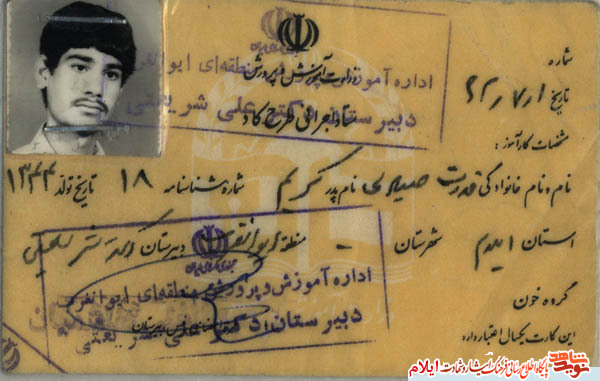 وزارت آموزش و پرورش
ستاد اجرائی طرح کاد
اداره آموزش و پرورش منطقه‌ای ایوانغرب
دبیرستان دکتر علی شریعتی
شماره
تاریخ ۶۲/۷/۱
مشخصات کارآموز:
نام و نام خانوادگی قدرت صیدی نام پدر کریم شماره شناسنامه ۱۸ تاریخ تولد ۱۳۴۴
استان ایلام شهرستان - منطقه ایوانغرب دبیرستان دکتر شریعتی
اداره آموزش و پرورش منطقه‌ای ایوانغرب
دبیرستان دکتر علی شریعتی
گروه خون
این کارت یکسال اعتبار دارد
نوید شاهد
پایگاه اطلاع رسانی فرهنگ ایثار و شهادت ایلام